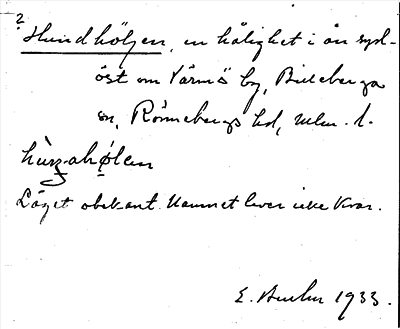 2
Hundhöljen, en hålighet i ån syd-
öst om Värmö by, Billeberga
sn, Rönnebergs hd, Mlm. l.
hùnahǿlen
Läget obekant. Namnet lever icke kvar.
E. 1933.